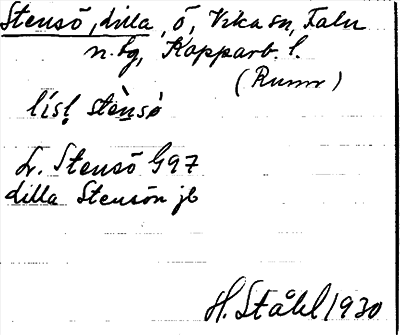 Stensö, Lilla, ö, Vika sn, Falu
n. tg, Kopparb. l.
(Runn)
lísḷ stènsö
L. Stensö G97
Lilla Stensön jb
H. Ståhl 1930